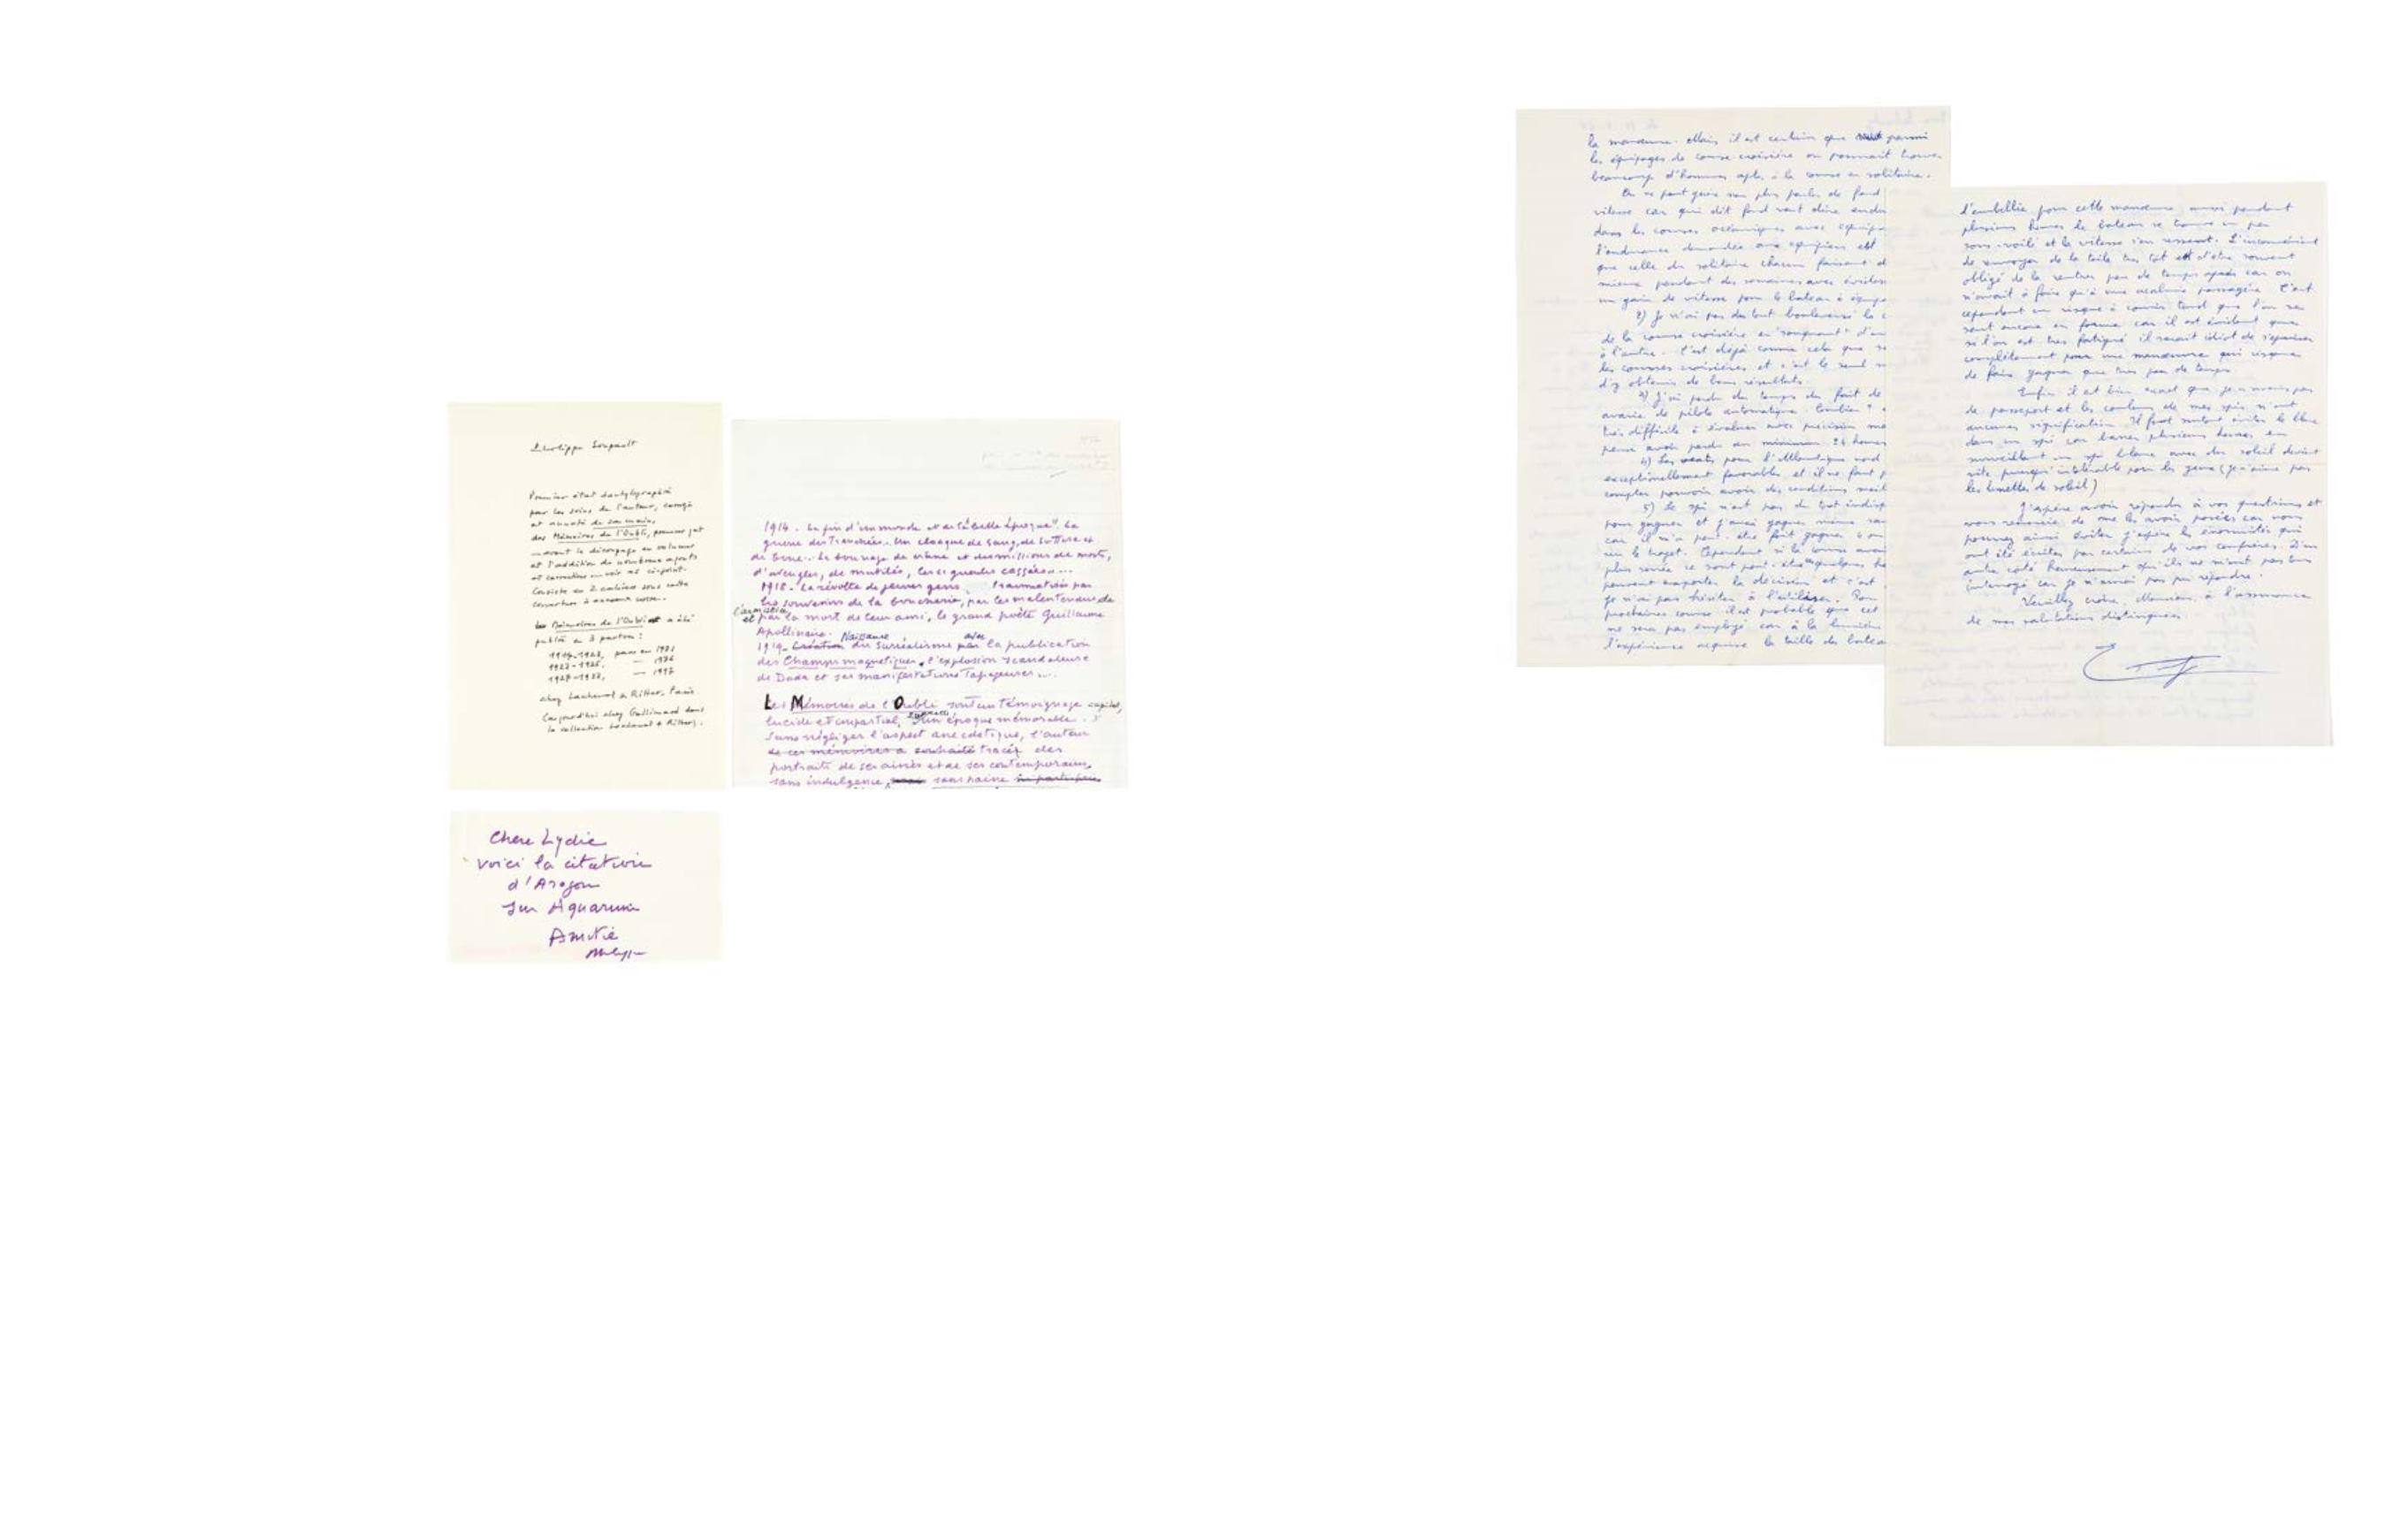 Philippe Soupault
Premier état dactylographié
par les soins de l'auteur, corrigé
et annoté de sa main,
des Mémoires de l'Oubli, premier jet
— avant le découpage en volumes
et l'addition de nombreux ajouts
et corrections — voir ms ci-joint.
Consiste en 2 cahiers sous
couverture à anneaux
Les Mémoires de l'Oubli a été
publié en 3 parties :
1914-1923, paru en 1981
1923-1926, — 1986
1927-1933, — 1997
chez Lachenal & Ritter, Paris
(aujourd'hui chez Gallimard dans
la collection Lachenal & Ritter).
Chere Lydie
voici la citation
d'Aragon
sur Aquarium
Amitié
Philippe
1914 - La fin d'un monde et de la "belle époque". La
guerre des Tranchées. Un cloaque de sang, de sottise et
de boue. Le bourrage de crâne et des millions de morts,
d'aveugles, de mutilés, les "gueules cassées"...
1918 - La révolte de jeunes gens traumatisés par
les souvenirs de la boucherie, par les malentendus de
l'armistice
et par la mort de leur ami, le grand poète Guillaume
Apollinaire. Naissance avec
1919 - Création du Surréalisme par la publication
des Champs magnétiques, l'explosion scandaleuse
de Dada et ses manifestations tapageuses ...
Les Mémoires de l'Oubli sont un témoignage capital,
lucide et impartial, d'une époque mémorable.
Sans négliger l'aspect anecdotique, l'auteur
de ces mémoires a souhaité tracer des
portraits de ses ainés et de ses contemporains,
sans indulgence, sans haine
la manœuvre. Mais il est certain que parmi
les équipages de course-croisière on pourrait trouver
beaucoup d'hommes aptes à la course en solitaire.
On ne peut guère non plus parler de fond
vitesse car qui dit fond veut dire endu
dans les courses océaniques avec équipa
l'endurance demandée aux équipiers est
que celle du solitaire chacun faisant d
mieux pendant des semaines avec éviden
un gain de vitesse pour le bateau à équip
2) Je n'ai pas du tout bouleversé la c
de la course croisière en "sprintant" d'un
à l'autre. C'est déjà comme cela que se
les courses croisières et c'est le seul m
d'y obtenir de bons résultats.
3) J'ai perdu du temps du fait de
avarie de pilote automatique. Combien ?
très difficile à évaluer avec précision ma
pense avoir perdu au minimum 24 heures
4) Les vents pour l'Atlantique nord
exceptionnellement favorables et il ne faut p
compter pouvoir avoir des conditions meil
5) Le spi n'est pas du tout indisp
pour gagner et j'aurai gagner même san
car il m'a peut-être fait gagner
sur le trajet. Cependant si la course avai
plus serrée ce sont peut-être quelques he
peuvent emporter la décision et c'est
je n'ai pas hésiter à l'utiliser. Pour
prochaines course il est probable que cet
ne sera pas employé car à la lumière
l'expérience acquise la taille des batea
d'embellie pour cette manœuvre aussi pendant
plusieurs heures le bateau se trouve un peu
sous-voilé et la vitesse s'en ressent. L'inconvénient
de renvoyer de la toile très tôt est d'être souvent
obligé de la rentrer peu de temps après car on
n'avait à faire qu'à une acalmie passagère. C'est
cependant un risque à courir tant que l'on se
sent encore en forme car il est évident que
si l'on est très fatigué il serait idiot de s'épuiser
complètement pour une manœuvre qui risque
de faire gagner que très peu de temps.
Enfin il est bien exact que je n'avais pas
de passeport et les couleurs de mes spis n'ont
aucunes signification. Il faut surtout éviter le blanc
dans un spi car barrer plusieurs heures en
surveillant un spi blanc avec du soleil devient
vite presqu'intolérable pour les yeux (je n'aime pas
les lunettes de soleil)
J'espère avoir répondu à vos questions et
vous remercie de me les avoir posées car vous
pourrez ainsi éviter j'espère les énormités qui
ont été écrites par certains de vos confrères. D'un
autre côté heureusement qu'ils ne m'ont pas tous
interrogé car je n'aurai pas pu répondre.
Veuillez croire, Monsieur, à l'assurance
de mes salutations distinguées